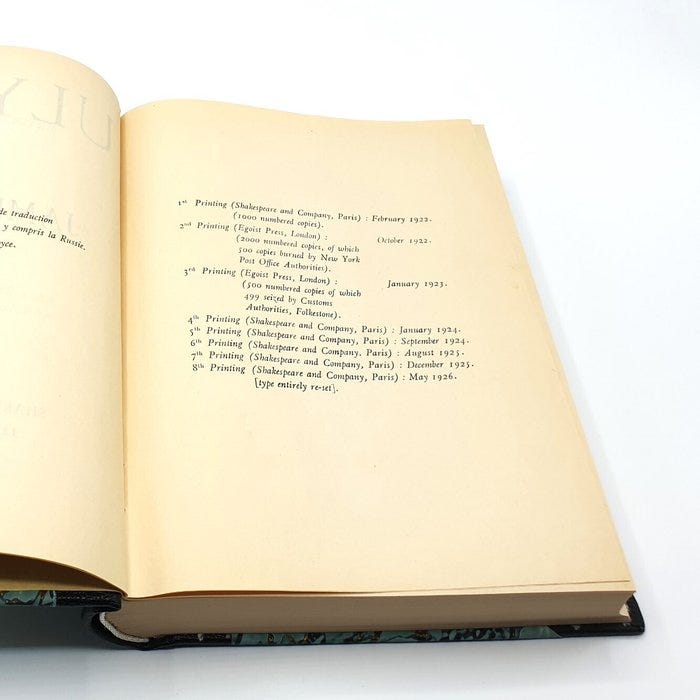 de traduction
y compris la Russie.
1st Printing (Shakespeare and Company, Paris) : February 1922.
(1000 numbered copies).
2nd Printing (Egoist Press, London) : October 1922.
(2000 numbered copies, of which
500 copies burned by New York
Post Office Authorities).
3rd Printing (Egoist Press, London) : January 1923.
(500 numbered copies of which
499 seized by Customs
Authorities, Folkestone).
4th Printing (Shakespeare and Company, Paris) : January 1924.
5th Printing (Shakespeare and Company, Paris) : September 1924.
6th Printing (Shakespeare and Company, Paris) : August 1925.
7th Printing (Shakespeare and Company, Paris) : December 1925.
8th Printing (Shakespeare and Company, Paris) : May 1926.
[type entirely re-set].